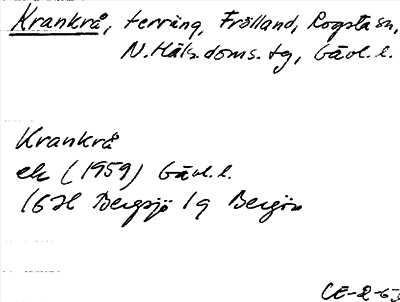 Krankrå, terräng, Frölland, Rogsta sn,
N. Häls. doms. tg, Gävl. l.
Krankrå
ek (1959) Gävl. l.
16H Bergsjö 1g Bergön
CE-2-63